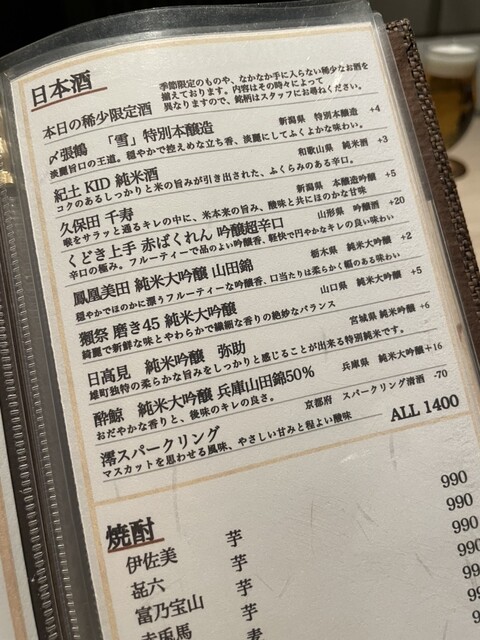 日本酒
本日の稀少限定酒
季節限定のものや、なかなか手に入らない稀少なお酒を
揃えております。内容はその時々によって
異なりますので、銘柄はスタッフにお尋ねください。
〆張鶴 「雪」特別本醸造 新潟県 特別本醸造 +4
淡麗旨口の王道。穏やかで控えめな立ち香、淡麗にしてふくよかな味わい。
紀土 KID 純米酒 和歌山県 純米酒 +3
コクのあるしっかりと米の旨みが引き出された、ふくらみのある辛口。
久保田 千寿 新潟県 本醸造吟醸 +5
喉をサラッと通るキレの中に、米本来の旨み、酸味と共にほのかな甘味
くどき上手 赤ばくれん 吟醸超辛口 山形県 吟醸酒 +20
辛口の極み。フルーティーで品のよい吟醸香、軽快で円やかなキレの良い味わい
鳳凰美田 純米大吟醸 山田錦 栃木県 純米大吟醸 +2
穏やかでほのかに漂うフルーティーな吟醸香、口当たりは柔らかく幅のある味わい
獺祭 磨き45 純米大吟醸 山口県 純米大吟醸 +5
綺麗で新鮮な味とやわらかで繊細な香りの絶妙なバランス
日高見 純米吟醸 弥助 宮城県 純米吟醸 +6
雄町独特の柔らかな旨みをしっかりと感じることが出来る特別純米です。
酔鯨 純米大吟醸 兵庫山田錦50% 兵庫県 純米大吟醸 +16
おだやかな香りと、後味のキレの良さ。
澪スパークリング 京都府 スパークリング清酒 -70
マスカットを思わせる風味、やさしい甘みと程よい酸味
ALL 1400
焼酎
伊佐美 芋 990
㐂六 芋 990
富乃宝山 芋 990
赤兎馬 芋 990
麦 990